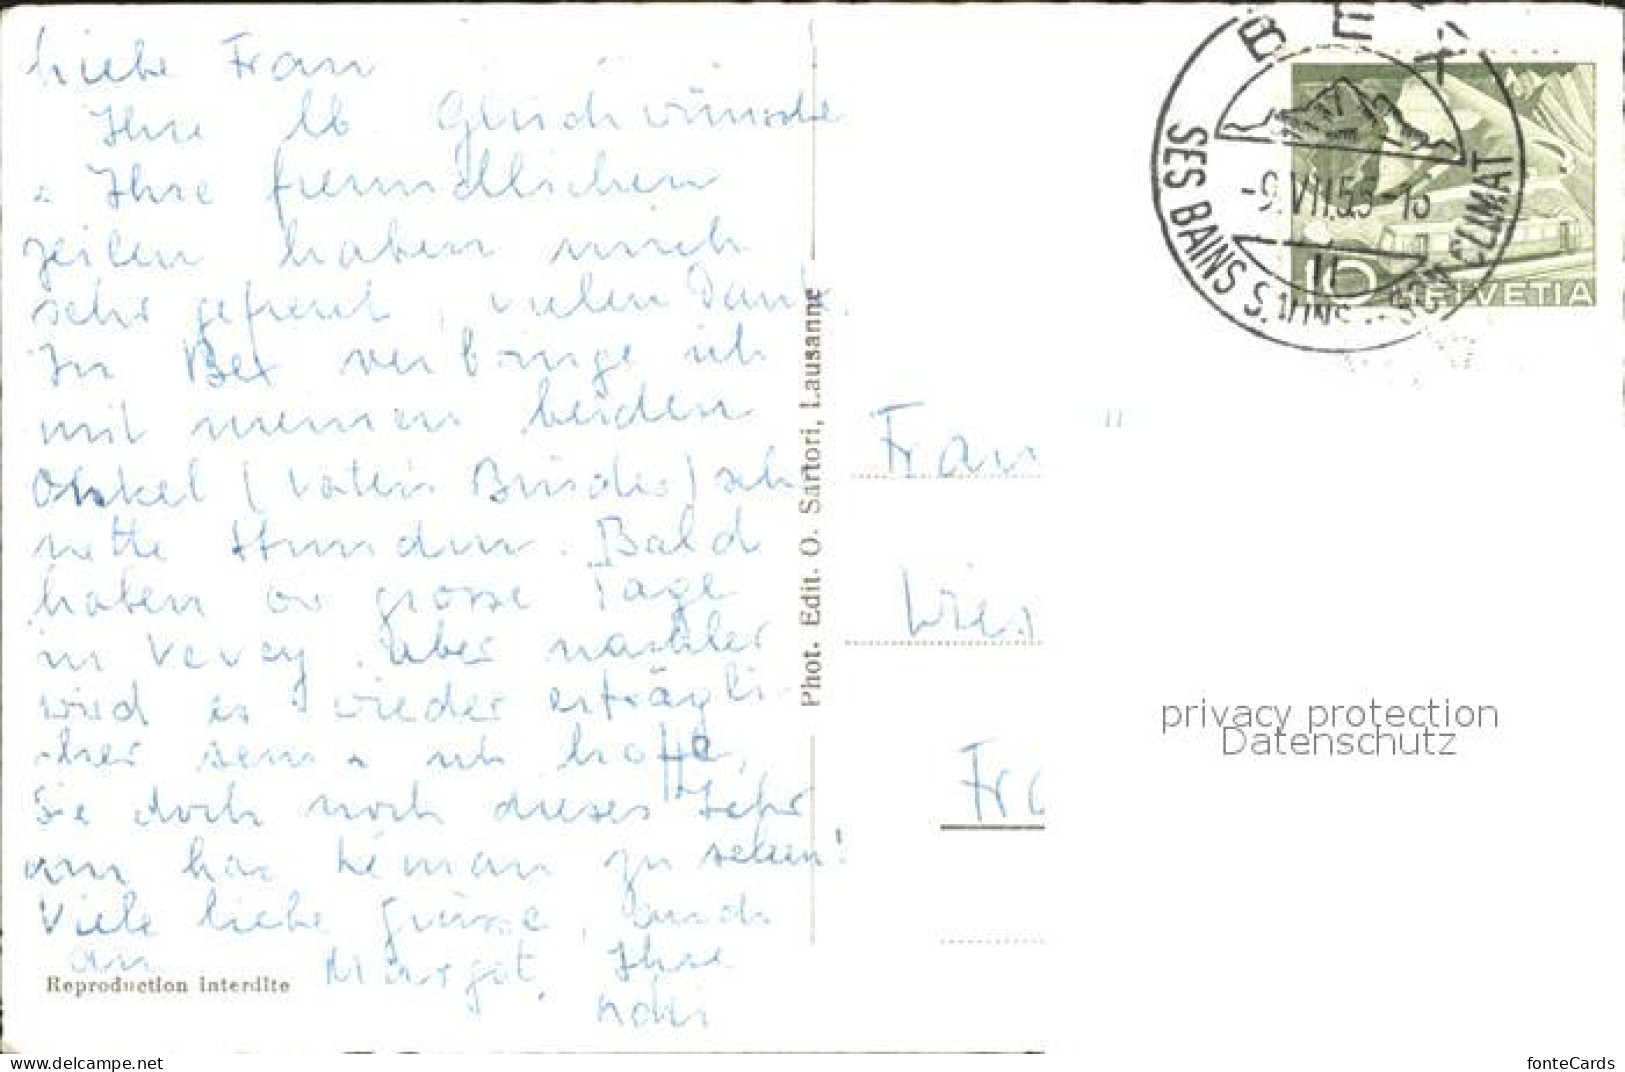 Liebe Frau
Ihre lb Glückwünsche
u. Ihre freundlichen
Zeilen haben mich
sehr gefreut, vielen Dank.
In Bex verbringe ich
mit meinen beiden
Onkel (Vaters Brüder) sehr
nette Stunden. Bald
haben wir grosse Tage
in Vevey. Aber nachher
wird es wieder erträgli-
cher sein u ich hoffe,
Sie doch noch dieses Jahr
am Lac Léman zu sehen!
Viele liebe Grüsse, auch
an Margot, Ihre
Reproduction interdite
Phot. Edit. O. Sartori, Lausanne
BEX
SES BAINS SALINS SON CLIMAT
-9.VII.55-
11
10 HELVETIA
Frau
privacy protection
Datenschutz
the best online collectibles marketplace
fonteCards